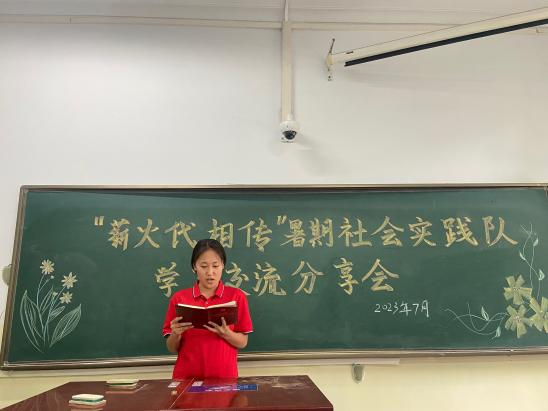 “薪火代代相传”暑期社会实践队
学习交流分享会
2023年7月